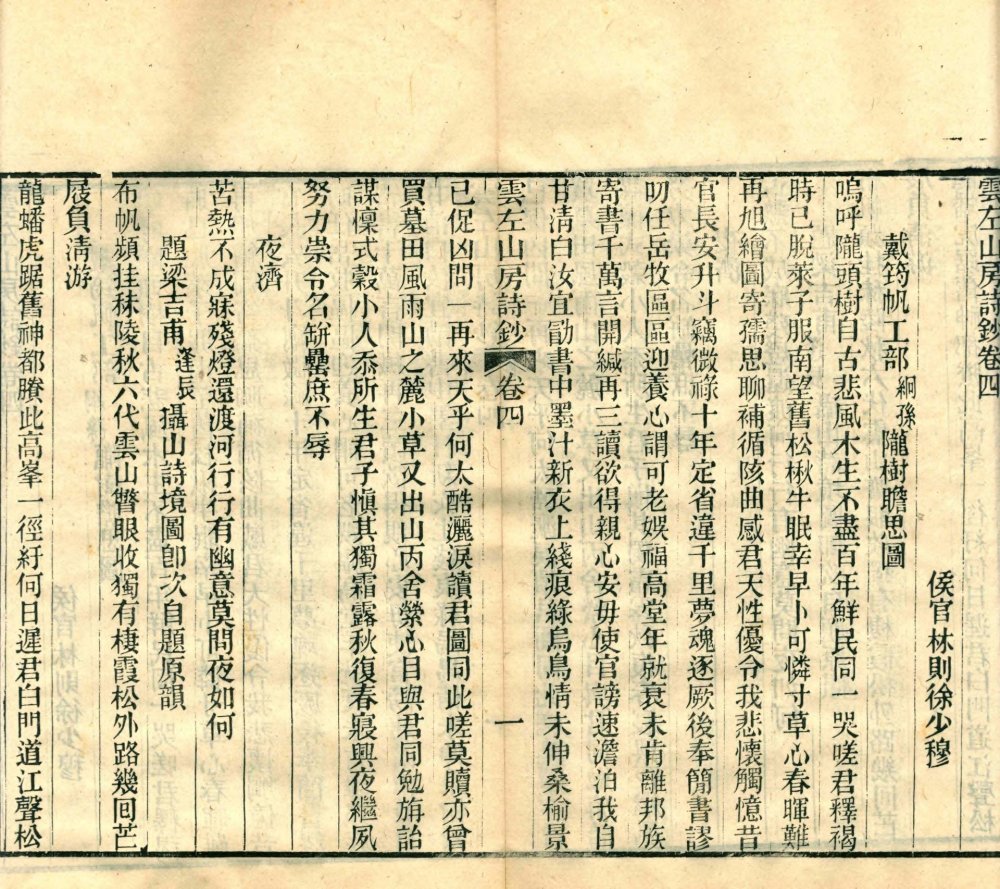 雲左山房詩鈔卷四
侯官林則徐少穆
戴筠帆工部絅孫隴樹瞻思圖
嗚呼隴頭樹自古悲風木生不盡百年鮮民同一哭嗟君釋褐
時已脫萊子服南望舊松楸牛眠幸早卜可憐寸草心春暉難
再旭繪圖寄孺思聊補循陔曲感君天性優令我悲懷觸憶昔
官長安升斗竊微祿十年定省違千里夢魂逐厥後奉簡書謬
叨任岳牧區區迎養心謂可老娛福高堂年就衰未肯離邦族
寄書千萬言開緘再三讀欲得親心安毋使官謗速澹泊我自
甘清白汝宜勖書中墨汁新衣上綫痕綠烏鳥情未伸桑榆景
雲左山房詩鈔 卷四 一
已促凶問一再來天乎何太酷灑淚讀君圖同此嗟莫贖亦曾
買墓田風雨山之麓小草又出山丙舍縈心目與君同勉旃詒
謀懍式穀小人忝所生君子愼其獨霜露秋復春寢興夜繼夙
努力崇令名缾罍庶不辱
夜濟
苦熱不成寐殘燈還渡河行行有幽意莫問夜如何
題梁吉甫逢辰攝山詩境圖卽次自題原韻
布帆頻挂秣陵秋六代雲山瞥眼收獨有棲霞松外路幾回芒
屐負淸游
龍蟠虎踞舊神都賸此高峯一徑紆何日遲君白門道江聲松